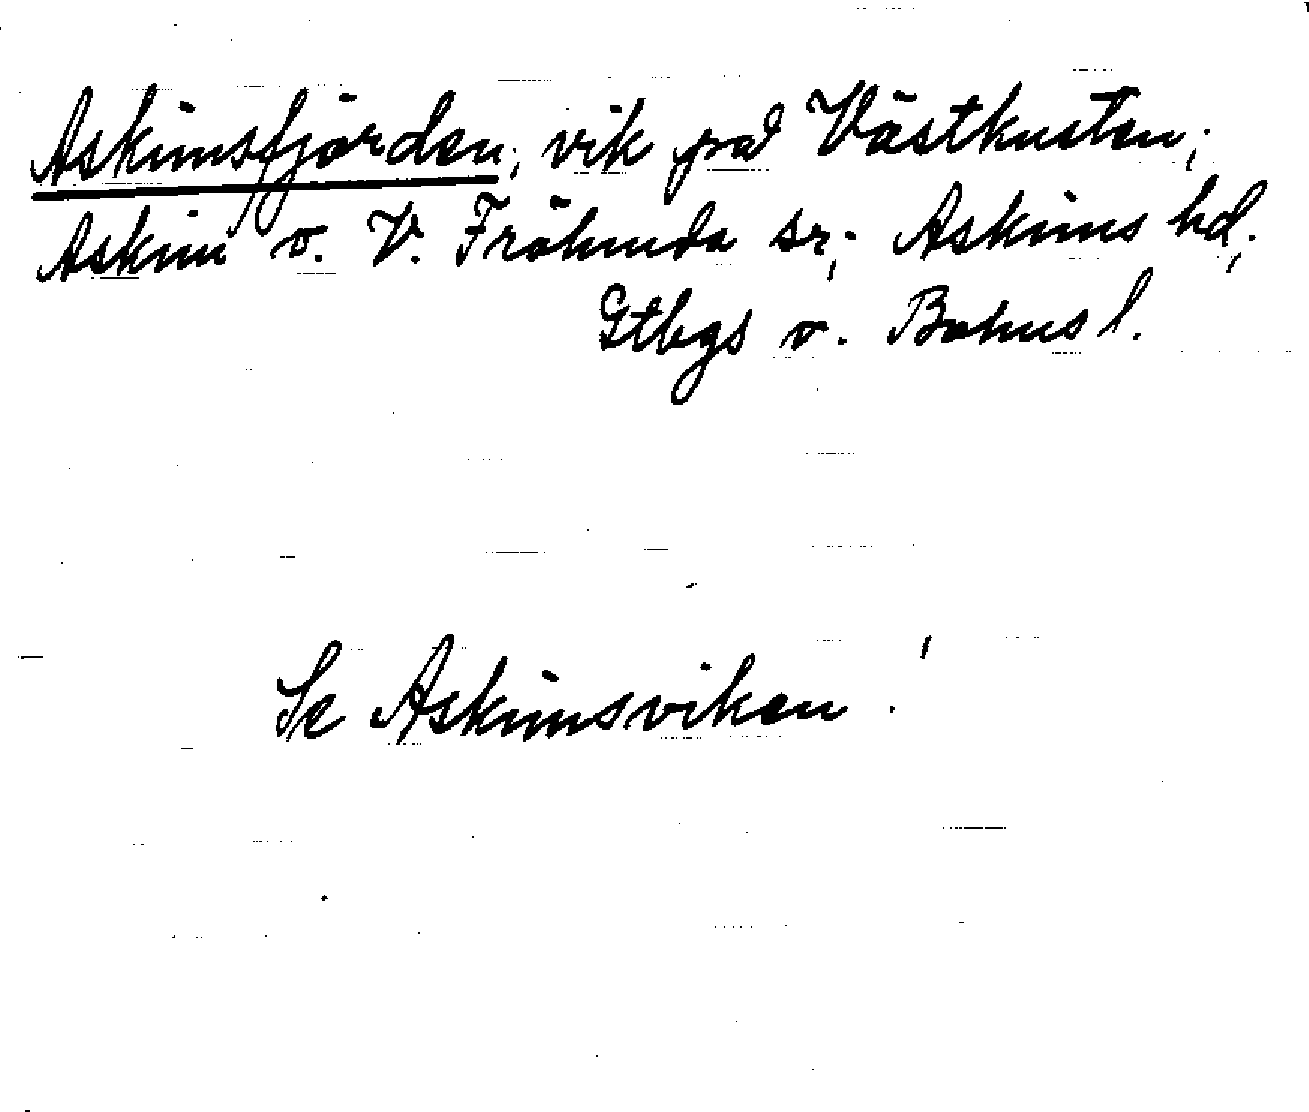 Askimsfjorden, vik på Västkusten;
Askim o. V. Frölunda sr; Askims hd,
Gtbgs o. Bohus l.
Se Askimsviken!